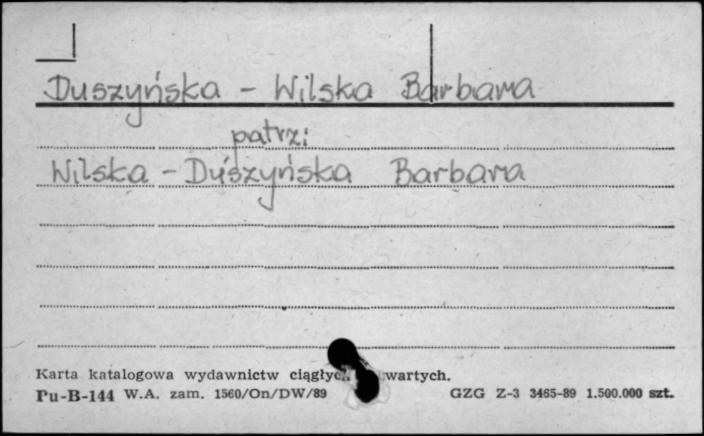 Duszyńska - Wilska Barbara
patrz:
Wilska - Duszyńska Barbara
Karta katalogowa wydawnictw ciągłych wartych.
Pu-B-144 W.A. zam. 1560/On/DW/89 GZG Z-3 3465-89 1.500.000 szt.